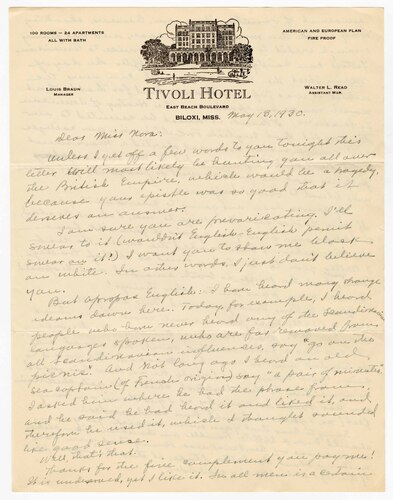 100 ROOMS — 24 APARTMENTS
ALL WITH BATH
AMERICAN AND EUROPEAN PLAN
FIRE PROOF
LOUIS BRAUN
MANAGER
WALTER L. READ
ASSISTANT MGR.
TIVOLI HOTEL
EAST BEACH BOULEVARD
BILOXI, MISS.
May 13, 1930.
Dear Miss Nora:
Unless I get off a few words to you tonight this
letter will most likely be hunting you all over
the British Empire, which would be a tragedy,
because your epistle was so good that it
deserves an answer.
I am sure you are prevaricating. I'll
swear to it (wouldn't English-English permit
swear on it?) I want you to show me black
on white. In other words, I just don't believe
you.
But apropos English: I have heard many strange
idioms down here. Today, for example, I heard
people who have never heard any of the Scandinavian
languages spoken, who are far removed from
all Scandinavian influences, say "go on the
picnic". And not long ago I heard an old
sea captain (of French origin) say "a pair of minutes."
I asked him where he had the phrase from,
and he said he had heard it and liked it, and
therefore he used it, which I thought sounded
like good sense.
Well, that's that.
Thanks for the fine complement you pay me!
It is undeserved, yet I like it. In all men is a certain